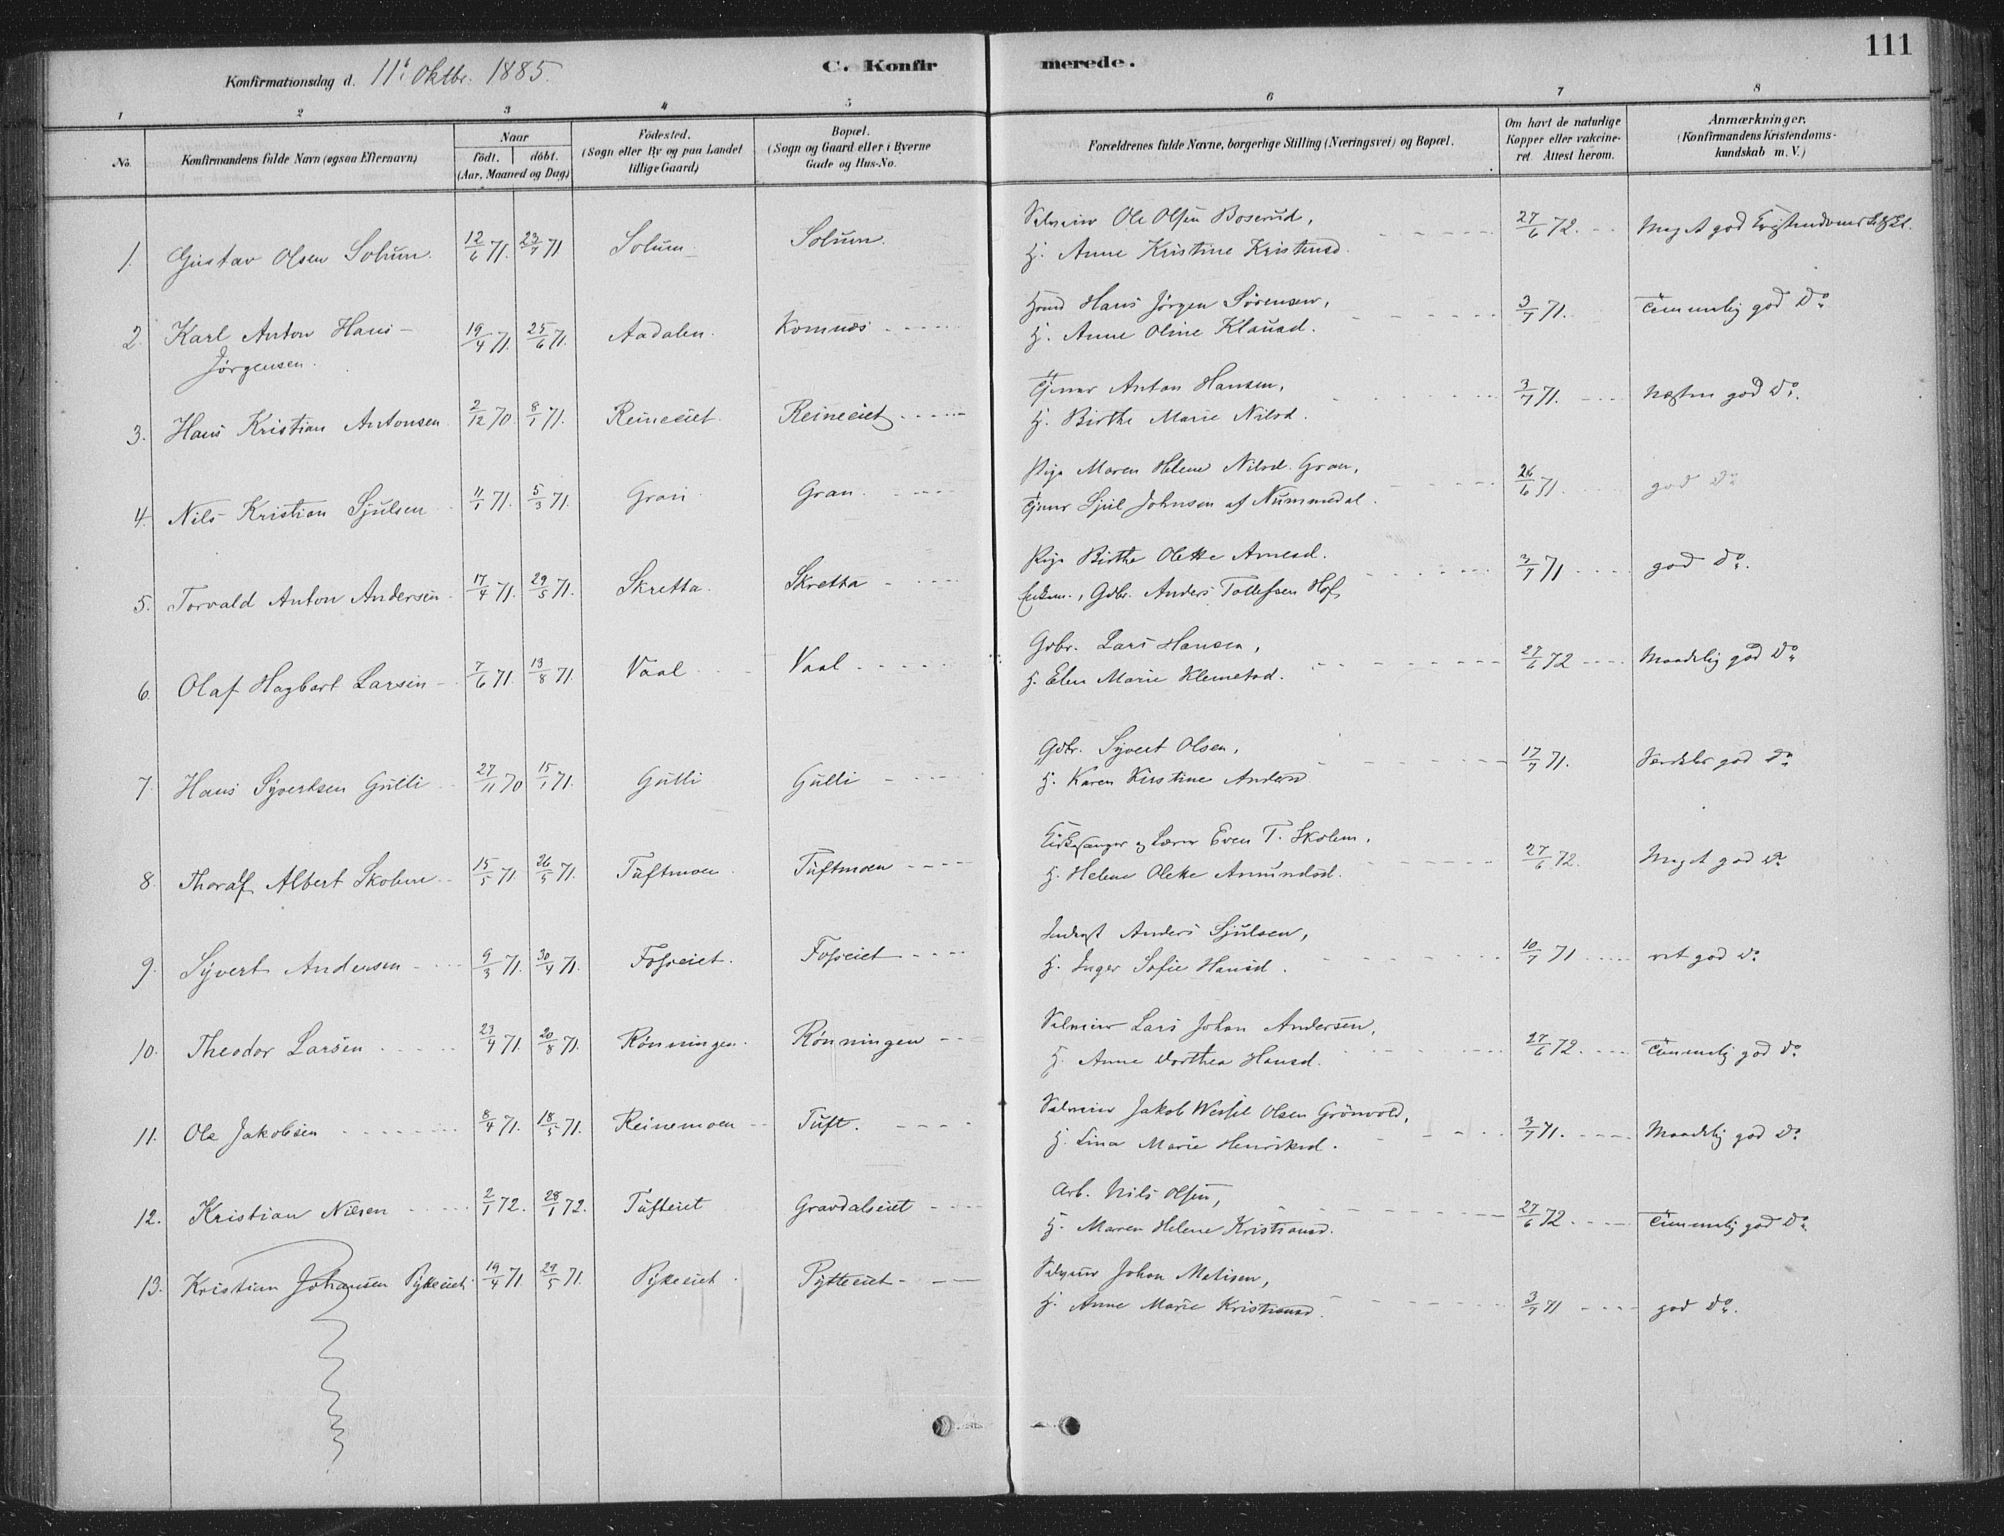 111
Konfirmationsdag d. 11' Oktbr. 1885.
C. Konfirmerede.
1 2 3 4 5 6 7 8
No.
Konfirmandens fulde Navn (ogsaa Efternavn)
Naar
födt. döbt.
(Aar, Maaned og Dag)
Födested.
(Sogn eller By og paa Landet
tillige Gaard)
Bopæl.
(Sogn og Gaard eller i Byerne
Gade og Hus-No.
Forældrenes fulde Navne, borgerlige Stilling (Næringsvei) og Bopæl.
Om havt de naturlige
Kopper eller vakcine-
ret. Attest herom.
Anmærkninger.
(Konfirmandens Kristendoms-
kundskab m. V.)
1. Gustav Olsen Solum. 12/6 71. 23/7 71 Solum Solum.
Selveier Ole Olsen Boserud,
H. Anne Kristine Kristensd. 27/6 72. Meget god Kristendoms
2. Karl Anton Hans-
Jørgensen. 19/4 71. 25/6 71. Aadalen. Komnæs
Hans Jørgen Sørensen,
H. Anne Oline Klausd. 3/7 71. Temmelig god Do.
3. Hans Kristian Antonsen 2/12 70. 8/1 71. Reineeiet. Reineeiet
Tjener Anton Hansen,
H. Birthe Marie Nilsd. 3/7 71. Næsten god Do.
4. Nils Kristian Sjulsen 11/1 71. 5/3 71. Gran Gran.
Pige Maren Helene Nilsd. Gran,
Tjener Sjul Johnsen af Nummedal. 26/6 71. god Do
5. Torvald Anton Andersen 17/4 71. 29/5 71. Skretta. Skretta
Pige Birthe Olette Arnesd.
Enkem., Gdbr. Anders Tollefsen Hof, 3/7 71 god Do.
6. Olaf Hagbart Larsen 7/6 71. 13/8 71. Vaal Vaal
Gdbr. Lars Hansen,
H. Elen Marie Klemetsd. 27/6 72 Maadelig god Do
7. Hans Syvertsen Gulli 27/11 70 15/1 71. Gulli Gulli
Gdbr. Syvert Olsen,
H. Karen Kirstine Andersd 17/7 71. Særdeles god Do
8. Thoralf Albert Skolem 15/5 71. 26/5 71. Tuftmoen Tuftmoen
Kirkesanger og Lærer Even T. Skolem,
H. Helene Olette Amundsd. 27/6 72. Meget god Do
9. Syvert Andersen 9/3 71. 30/4 71. Fosseiet. Fosseiet
Inderst Anders Sjulsen,
H. Inger Sofie Hansd. 10/7 71 ret god Do
10. Theodor Larsen 23/4 71. 20/8 71. Rønningen. Rønningen
Selveier Lars Johan Andersen,
H. Anne Dorthea Hansd. 27/6 72. Temmelig god Do
11. Ole Jakobsen 8/4 71. 18/5 71. Reinemoen Tuft.
Selveier Jakob Wessel Olsen Grönvold,
H. Lina Marie Henriksd. 3/7 71. Maadelig god Do
12. Kristian Nilsen 2/1 72. 28/1 72. Tufteiet Gravdalseiet
Arb. Nils Olsen,
H. Maren Helene Kristiansd. 27/6 72. Temmelig god Do
13. Kristian Johansen Pykeeiet 19/4 71. 29/5 71. Pykeeiet Pytteeiet
Selveier Johan Matisen,
H. Anne Marie Kristiansd. 3/7 71 god Do.